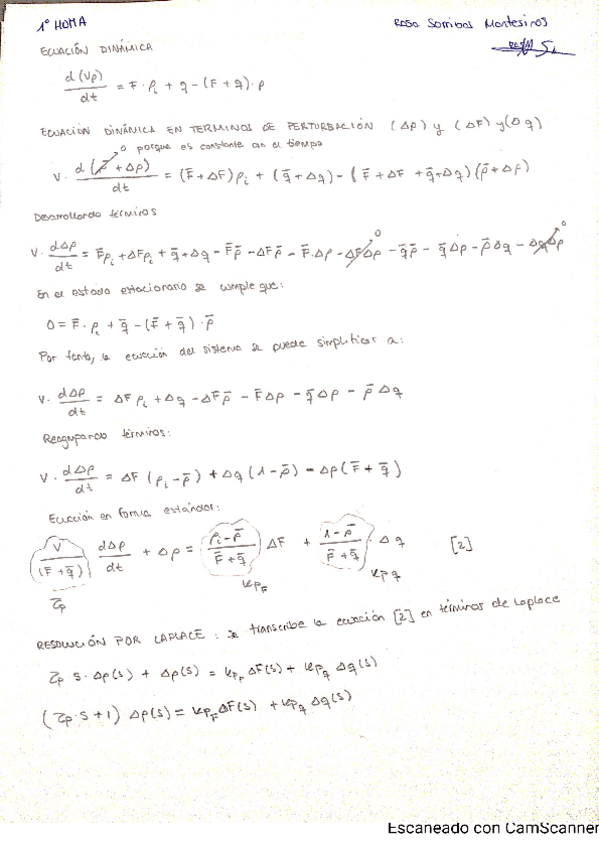 1º HOJA
Rosa Sorribas Montesinos
ECUACIÓN DINÁMICA
d(Vρ)/dt = F·ρi + q - (F + q)·ρ
ECUACION DINÁMICA EN TERMINOS DE PERTURBACIÓN (Δρ) y (ΔF) y (Δq)
0 porque es constante con el tiempo
V · d(ρ̄ + Δρ)/dt = (F̄ + ΔF)ρi + (q̄ + Δq) - (F̄ + ΔF + q̄ + Δq)(ρ̄ + Δρ)
Desarrollando términos
0 0
V · dΔρ/dt = F̄ρi + ΔFρi + q̄ + Δq - F̄ρ̄ - ΔFρ̄ - F̄·Δρ - ΔFΔρ - q̄ρ̄ - q̄Δρ - ρ̄Δq - ΔqΔρ
En el estado estacionario se cumple que:
0 = F̄·ρi + q̄ - (F̄ + q̄)·ρ̄
Por tanto, la ecuación del sistema se puede simplificar a:
V · dΔρ/dt = ΔF ρi + Δq - ΔFρ̄ - F̄Δρ - q̄Δρ - ρ̄Δq
Reagrupando términos:
V · dΔρ/dt = ΔF (ρi - ρ̄) + Δq (1 - ρ̄) - Δρ(F̄ + q̄)
Ecuación en forma estándar:
V/(F̄ + q̄) dΔρ/dt + Δρ = (ρi - ρ̄)/(F̄ + q̄) ΔF + (1 - ρ̄)/(F̄ + q̄) · Δq [2]
τp kpF kpq
RESOLUCIÓN POR LAPLACE: se transcribe la ecuación [2] en términos de Laplace
τp s·Δρ(s) + Δρ(s) = kpF ΔF(s) + kpq Δq(s)
(τp·s + 1) Δρ(s) = kpF ΔF(s) + kpq Δq(s)
Escaneado con CamScanner